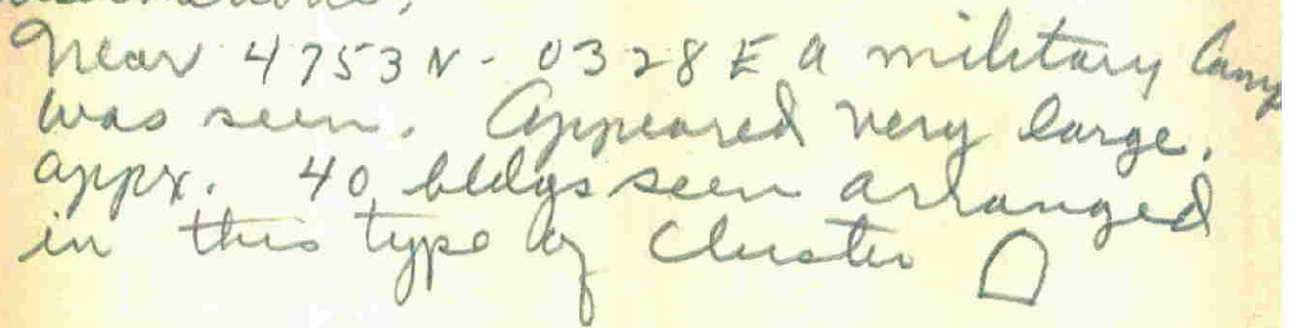 Near 4753 N - 0328 E a military Camp
was seen. Appeared very large.
appx. 40 bldgs seen arranged
in this type of Cluster